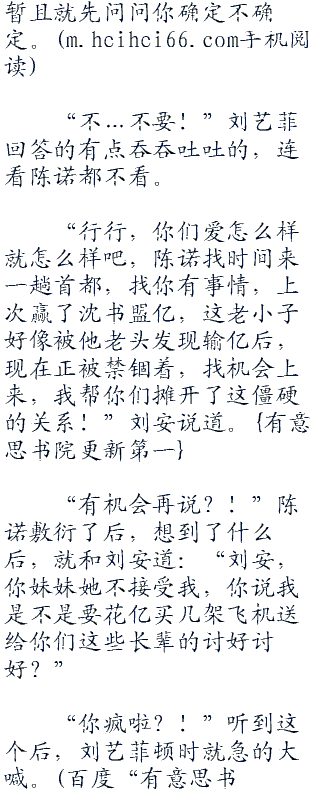 暂且就先问问你确定不确
定。(m.hcihci66.com手机阅
读)
“不…不要！”刘艺菲
回答的有点吞吞吐吐的，连
看陈诺都不看。
“行行，你们爱怎么样
就怎么样吧，陈诺找时间来
一趟首都，找你有事情，上
次赢了沈书盟亿，这老小子
好像被他老头发现输亿后，
现在正被禁锢着，找机会上
来，我帮你们摊开了这僵硬
的关系！”刘安说道。{有意
思书院更新第一}
“有机会再说？！”陈
诺敷衍了后，想到了什么
后，就和刘安道：“刘安，
你妹妹她不接受我，你说我
是不是要花亿买几架飞机送
给你们这些长辈的讨好讨
好？”
“你疯啦？！”听到这
个后，刘艺菲顿时就急的大
喊。(百度“有意思书